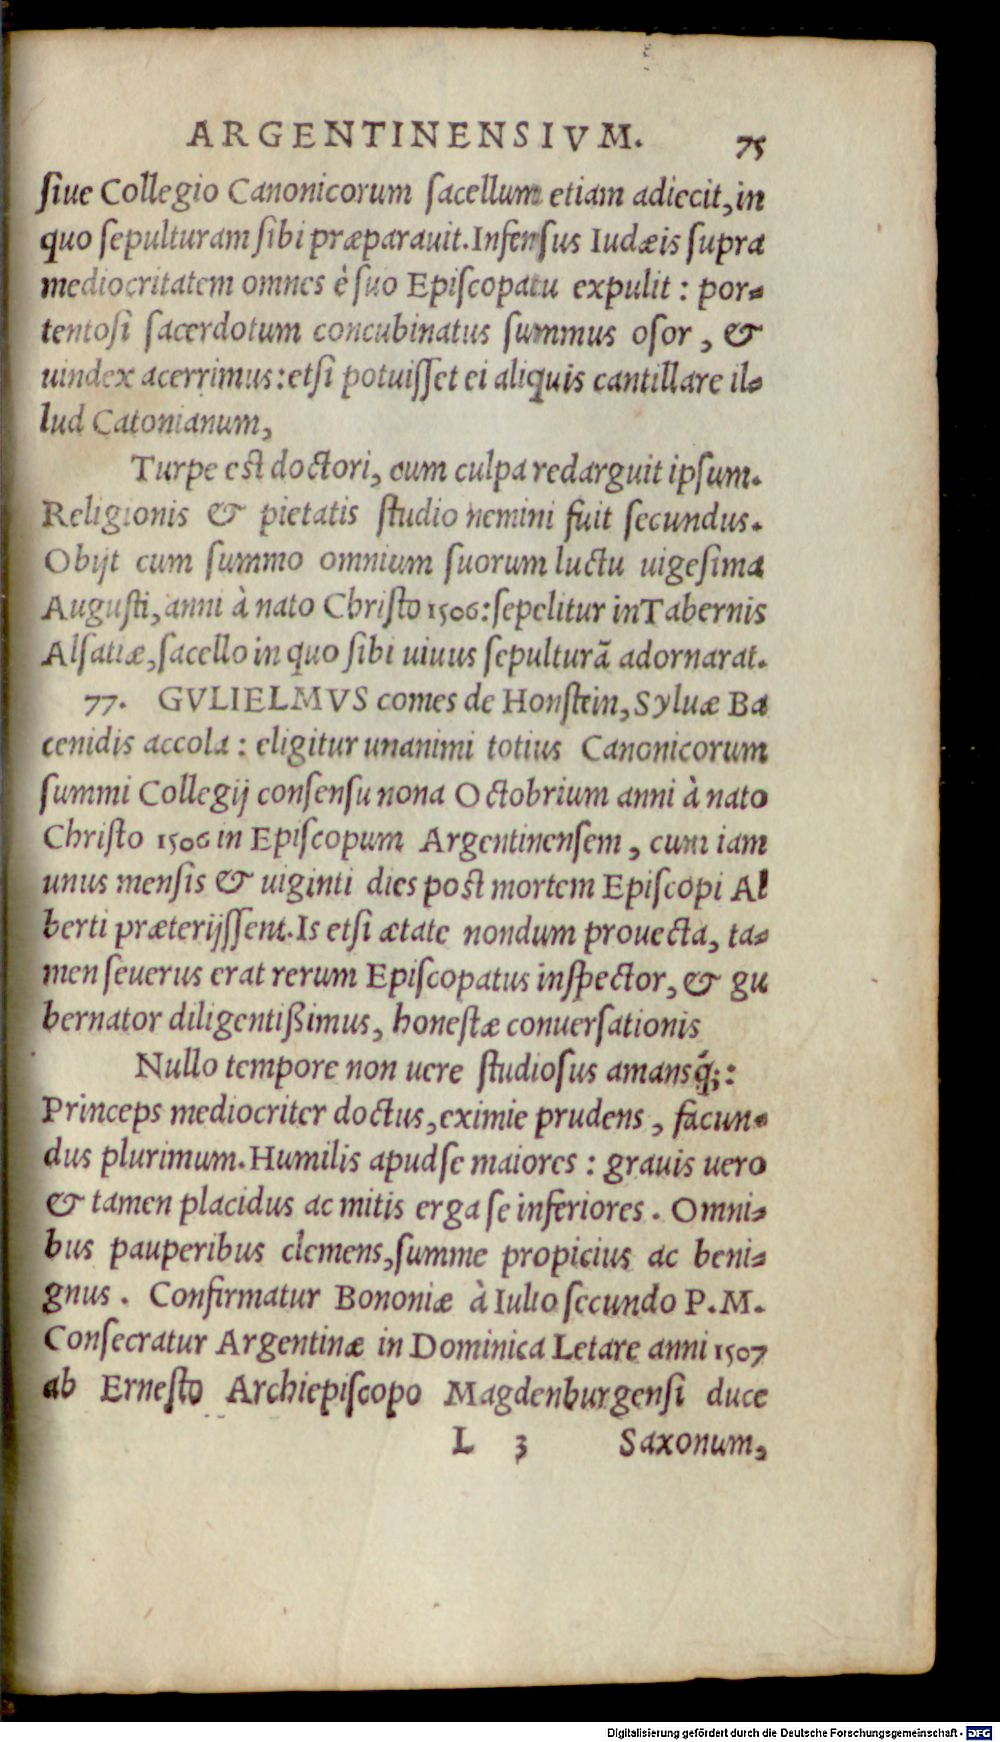 ARGENTINENSIVM. 75
ſiue Collegio Canonicorum ſacellum etiam adiecit, in
quo ſepulturam ſibi præparauit. Infenſus Iudæis ſupra
mediocritatem omnes è ſuo Epiſcopatu expulit : por-
tentoſi ſacerdotum concubinatus ſummus oſor , &
uindex acerrimus: etſi potuiſſet ei aliquis cantillare il-
lud Catonianum,
Turpe est doctori, cum culpa redarguit ipſum.
Religionis & pietatis ſtudio nemini fuit ſecundus.
Obijt cum ſummo omnium ſuorum luctu uigeſima
Auguſti, anni à nato Chriſto 1506: ſepelitur in Tabernis
Alſatiæ, ſacello in quo ſibi uiuus ſepulturã adornarat.
77. GVLIELMVS comes de Honſtein, Syluæ Ba
cenidis accola : eligitur unanimi totius Canonicorum
ſummi Collegij conſenſu nona Octobrium anni à nato
Chriſto 1506 in Epiſcopum Argentinenſem , cum iam
unus menſis & uiginti dies post mortem Epiſcopi Al
berti præterijſſent. Is etſi ætate nondum prouecta, ta-
men ſeuerus erat rerum Epiſcopatus inſpector, & gu
bernator diligentißimus, honeſtæ conuerſationis
Nullo tempore non uere ſtudioſus amansq́; :
Princeps mediocriter doctus, eximie prudens , facun-
dus plurimum. Humilis apud ſe maiores : grauis uero
& tamen placidus ac mitis erga ſe inferiores . Omni-
bus pauperibus clemens, ſumme propicius ac beni-
gnus . Confirmatur Bononiæ à Iulio ſecundo P. M.
Conſecratur Argentinæ in Dominica Letare anni 1507
ab Erneſto Archiepiſcopo Magdenburgenſi duce
L 3 Saxonum,
Digitalisierung gefördert durch die Deutsche Forschungsgemeinschaft - DFG